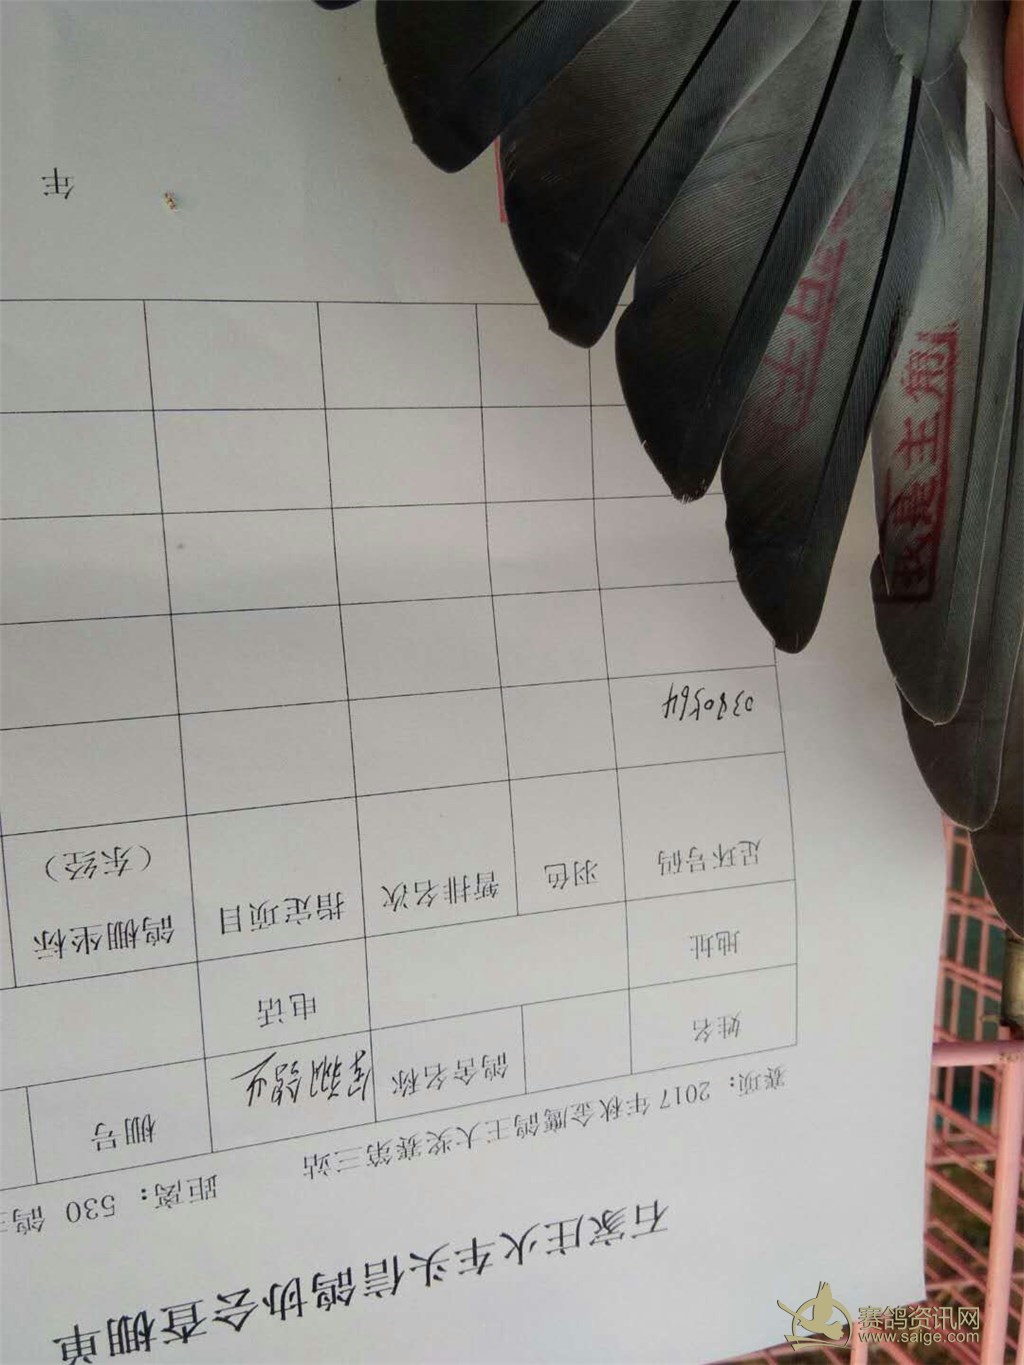 石家庄火车头信鸽协会查棚单
赛项：2017年秋金鹰鸽王大奖赛第三站 距离：530 鸽
姓名 鸽舍名称 翔鸽业 棚号
地址 电话
足环号码 羽色 暂排名次 指定项目 鸽棚坐标
（东经）
0380564
年
我是主角
赛鸽资讯网
www.saige.com